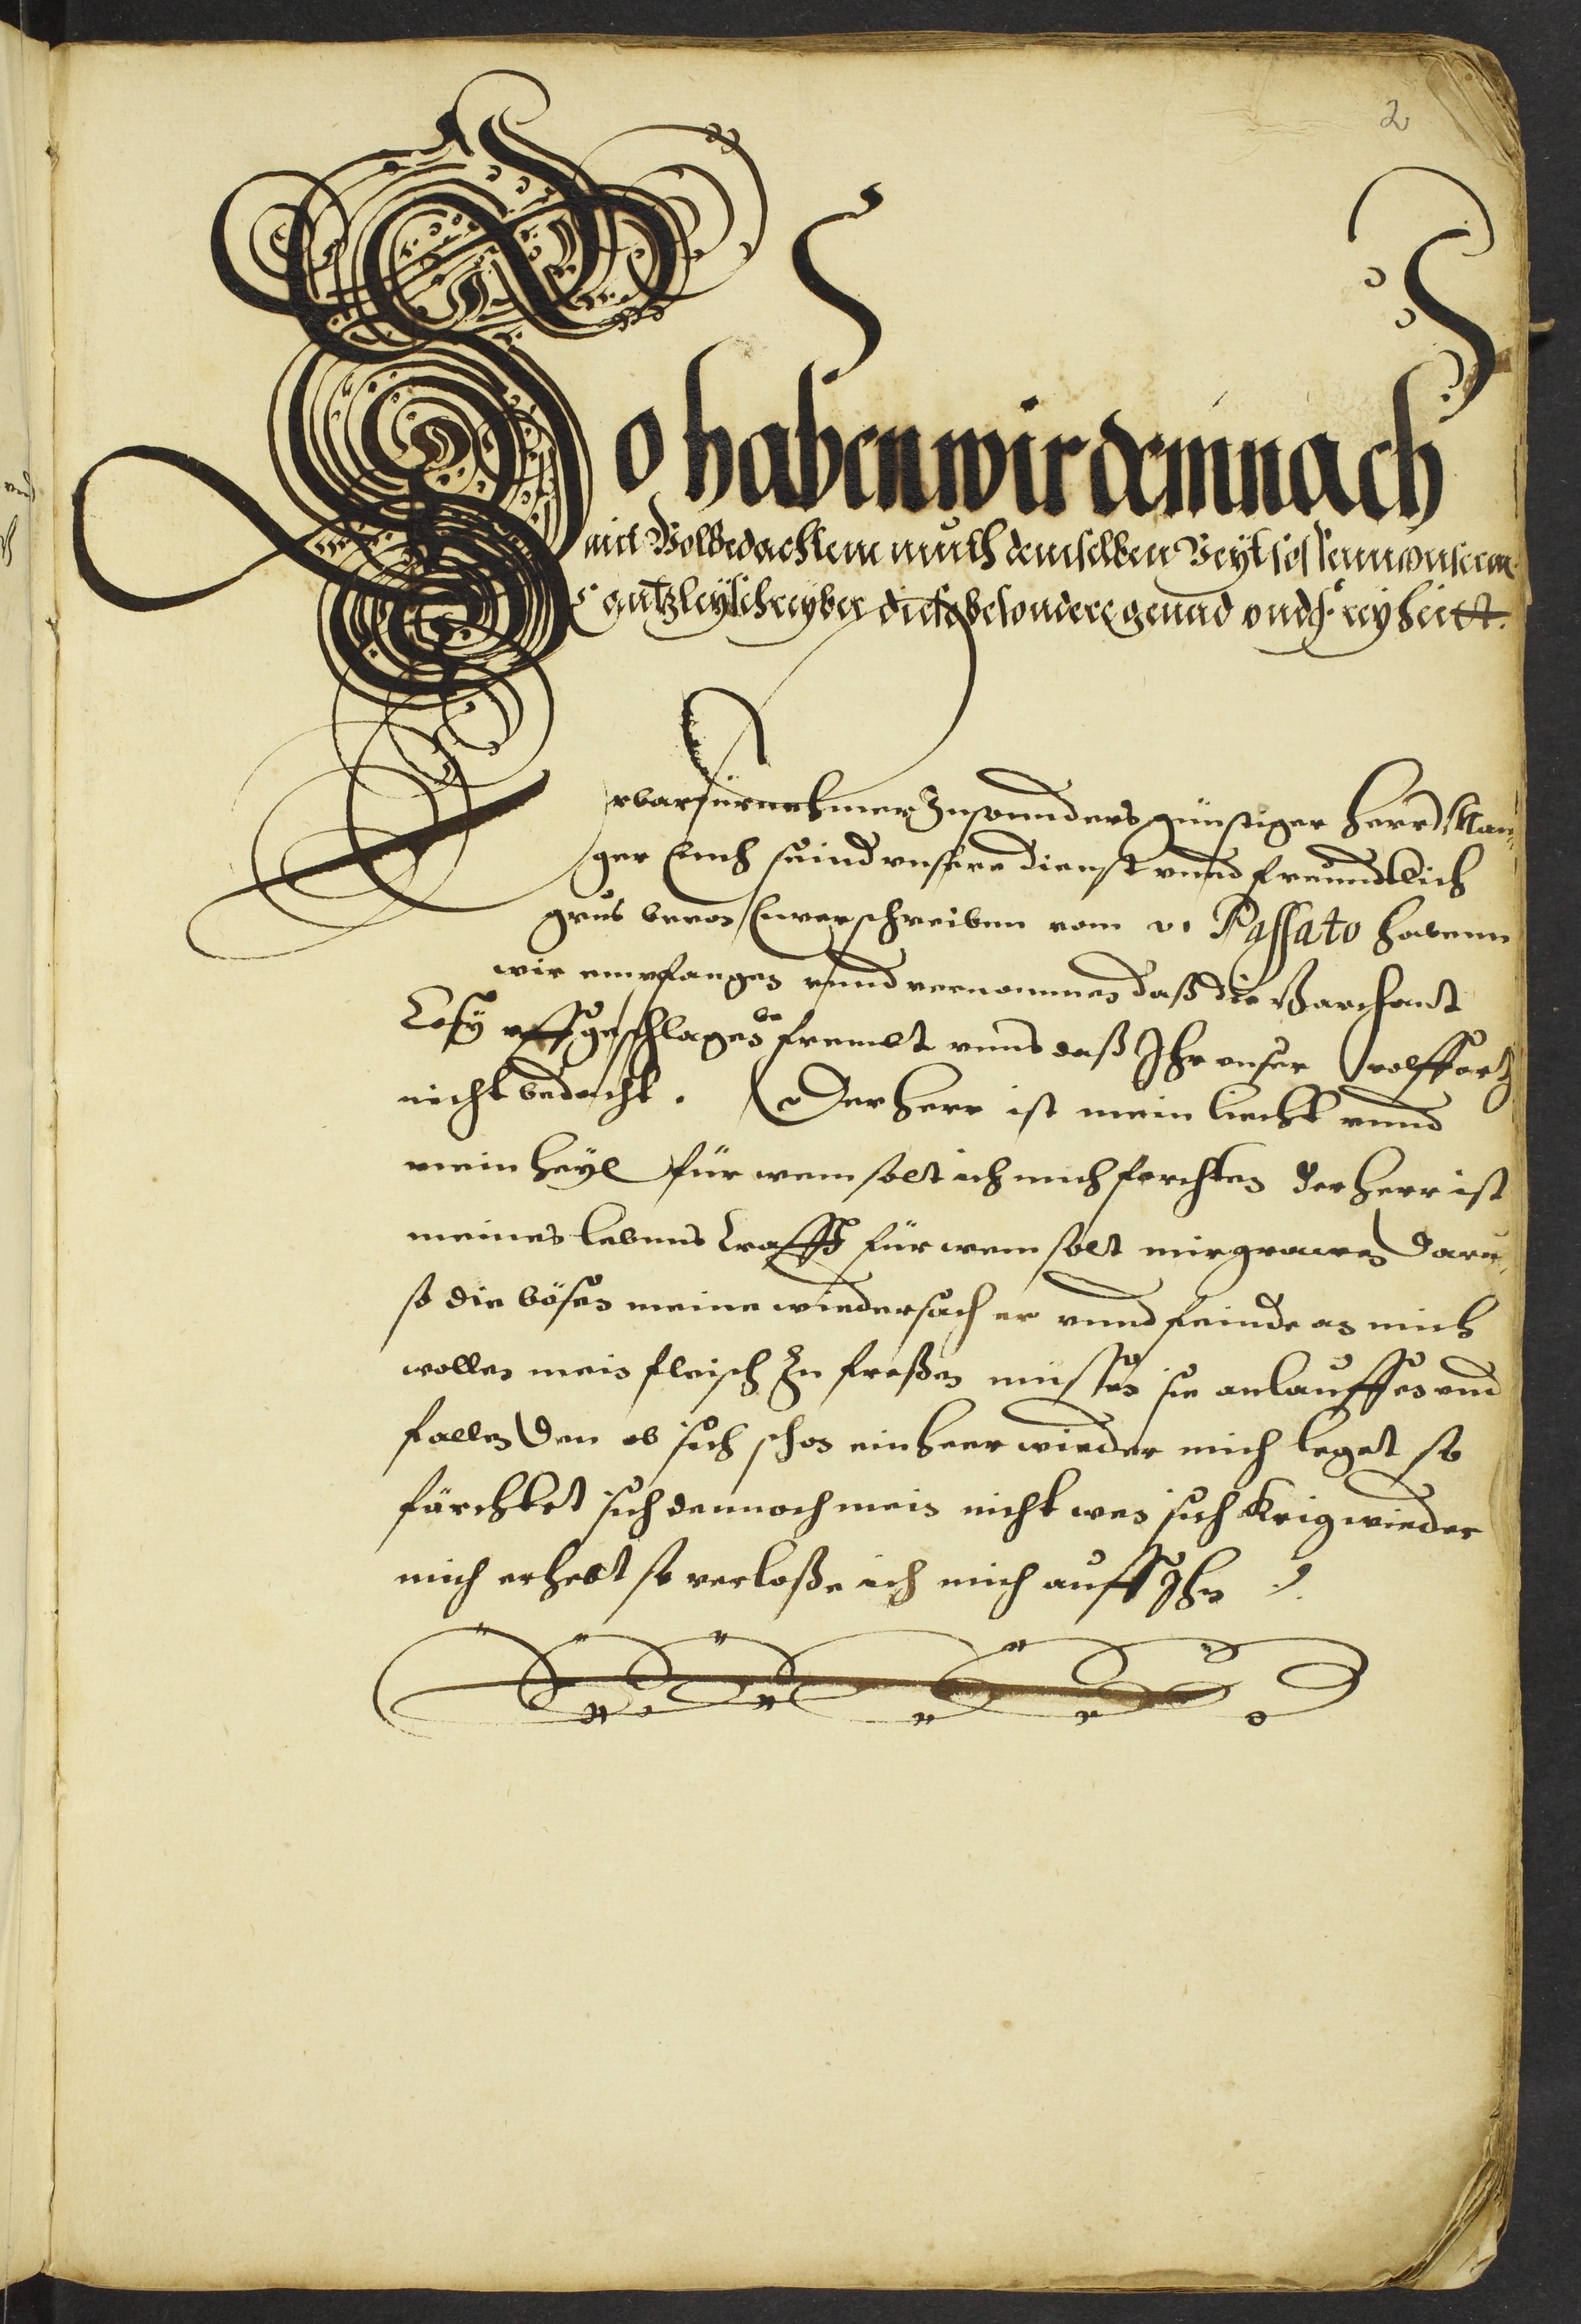 2
So haben wir demnach
mit Wolbedachtem muth demselben Veyt sessenn unserm
Cantzleyschreyber diese besondere genad und Freyheitt.
Erbar fürnehmer Insonnders günstiger Herr
ger Euch seind unsere dienst unnd freundtlich
grus bevor Euwer schreiben vom vi Passato habenn
wir empfangen unnd vernommen daß die Barchant
Lesÿ uffgeschlagen be fremdt unns daß Ihr unser
nicht bedacht. Der Herr ist mein liecht unnd
mein heÿl für wem solt ich mich forchten der herr ist
meines lebenns krafft für wem solt mir grawen darü
so die bösen meine wiedersacher unnd feinde an mich
wollen mein fleisch Zu freßen müssen sie anlauffen und
fallen Den ob sich schon ein heer wieder mich leget so
fürchtet sich dennoch mein nicht wen sich Krig wieder
mich erhebt so verloße ich mich auff Ihn